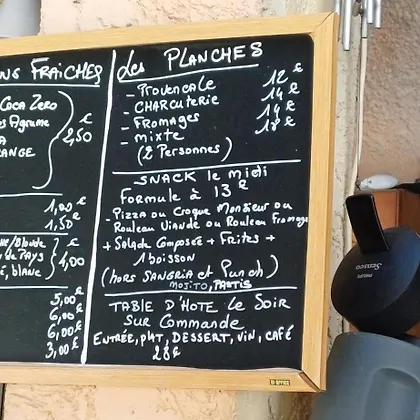 NS FRAICHES
COCA ZERO
ES AGRUME
A
RANGE
2,50 €
1,00 €
1,50 €
, blanc
4,00 €
5,00 €
6,00 €
6,00 €
3,00 €
Les PLANCHES
- PROVENCALE 12 €
- CHARCUTERIE 14 €
- FROMAGES 14 €
- MIXTE 18 €
(2 Personnes)
SNACK le MIDI
Formule à 13 €
- PIZZA ou CROQUE MONSIEUR OU
Rouleau Viande ou Rouleau Fromage
+ Salade Composée + Frites +
1 boisson
(hors SANGRIA et Punch)
MOJITO, PASTIS
TABLE D'HOTE le Soir
Sur Commande
ENTRÉE, PLAT, DESSERT, VIN, CAFÉ
28€
PHILIPS
Senseo